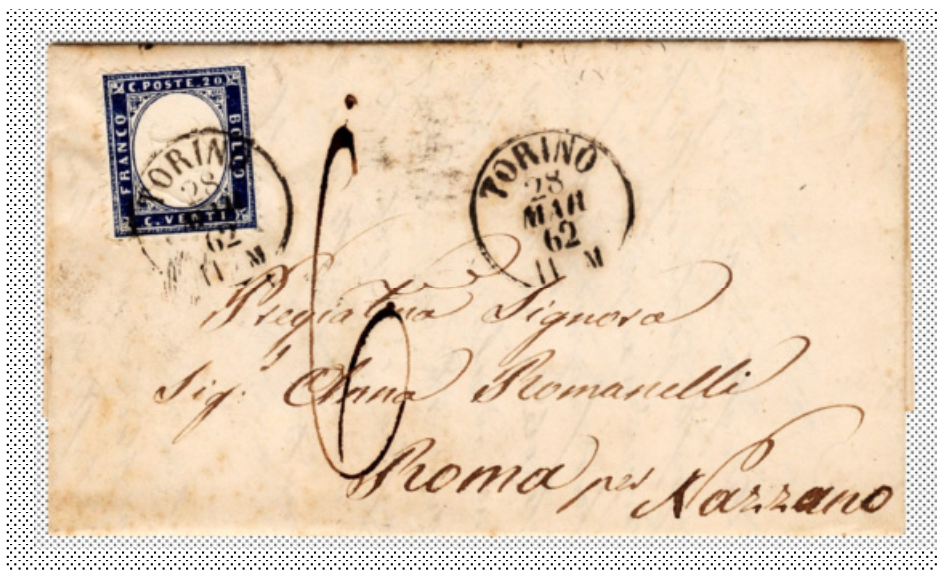 C. POSTE. 20.
FRANCO
BOLLO
C. VENTI
TORINO
28
MAR
62
11 M
TORINO
28
MAR
62
11 M
6
Pregiatma Signora
Sigra Anna Romanelli
Roma per Nazzano